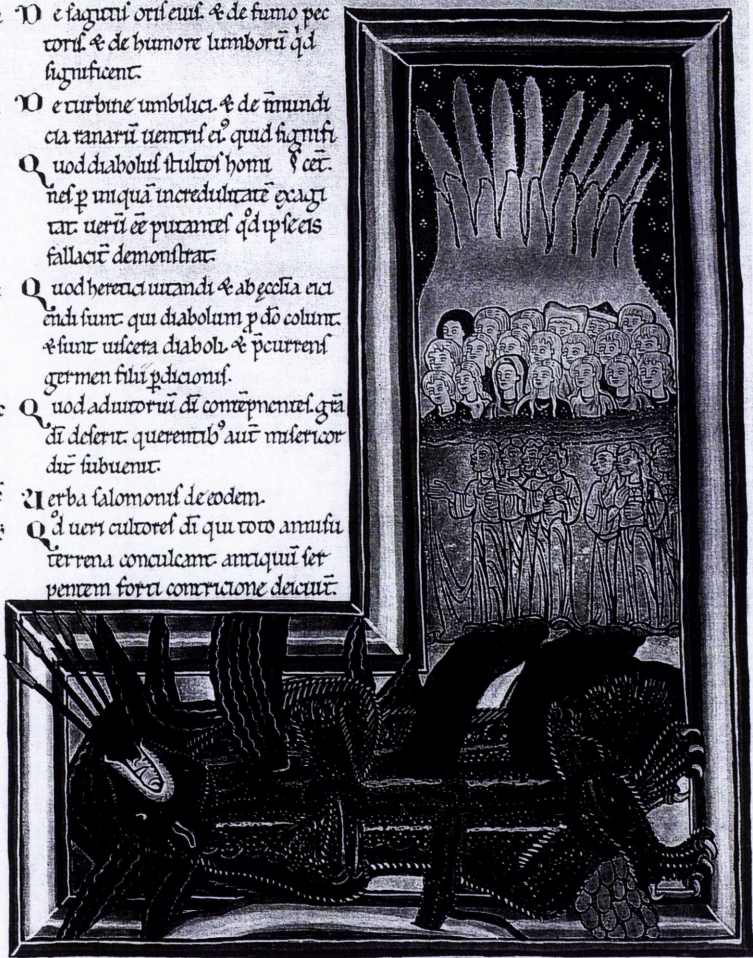 De sagittis oris eius. & de fumo pec
toris. & de humore lumborū qd
significent.
De turbine umbilici. & de īmundi
cia ranarū uentris eiꝰ quid signifi
Quod diabolus stultos homi cēt.
nes ꝑ uniquā incredulitatē exagi
tat. uerū eē putantes qd ipse eis
fallacit̄ demonstrat.
Quod heretici uitandi & ab ęcclīa eici
endi sunt. qui diabolum ꝓ dō colunt.
& sunt uiscera diaboli. & p̄currens
germen filii ꝑdicionis.
Quod adiutoriū dī contēpnentes. grā
dī deserit. querentibꝰ aut̄ misericor
dit̄ subuenit.
Verba salomonis de eodem.
Qd ueri cultores dī qui toto annisu
terrena conculcant. antiquū ser
pentem forti contricione deiciūt.